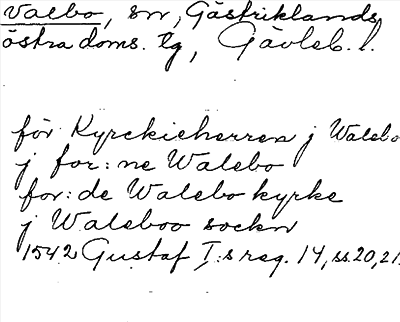 Valbo, sn, Gästriklands
östra doms. lg, Gävleb. l.
för Kyrckieherren j Walebo
j for:ne Walebo
for:de Walebo kyrke
j Waleboo sockn
1542 Gustaf I:s reg. 14, ss. 20, 21.